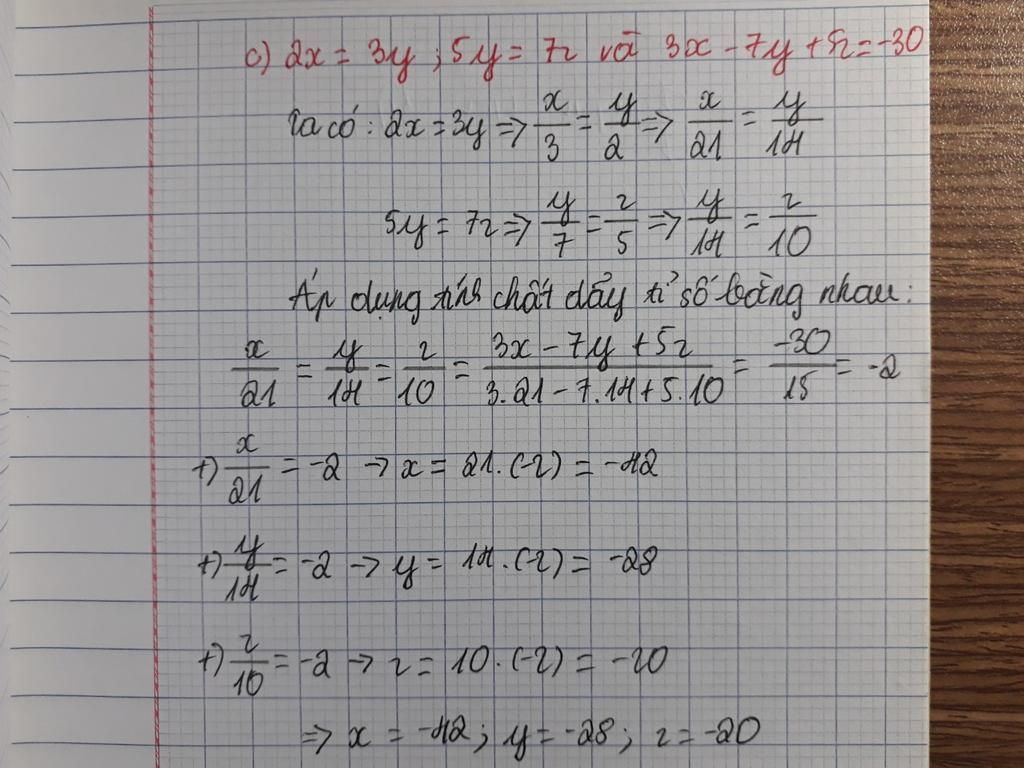 c) 2x = 3y ; 5y = 7z và 3x - 7y + 5z = -30
Ta có : 2x = 3y => x/3 = y/2 => x/21 = y/14
5y = 7z => y/7 = z/5 => y/14 = z/10
Áp dụng tính chất dãy tỉ số bằng nhau :
x/21 = y/14 = z/10 = (3x - 7y + 5z)/(3.21 - 7.14 + 5.10) = -30/15 = -2
+) x/21 = -2 -> x = 21.(-2) = -42
+) y/14 = -2 -> y = 14.(-2) = -28
+) z/10 = -2 -> z = 10.(-2) = -20
=> x = -42 ; y = -28 ; z = -20